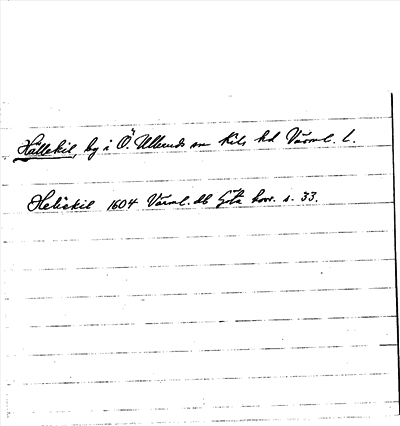 Hällekil, by i Ö Ulleruds sn Kils hd Värml. l.
Helickil 1604 Värml. db Göta hovr. s. 33.